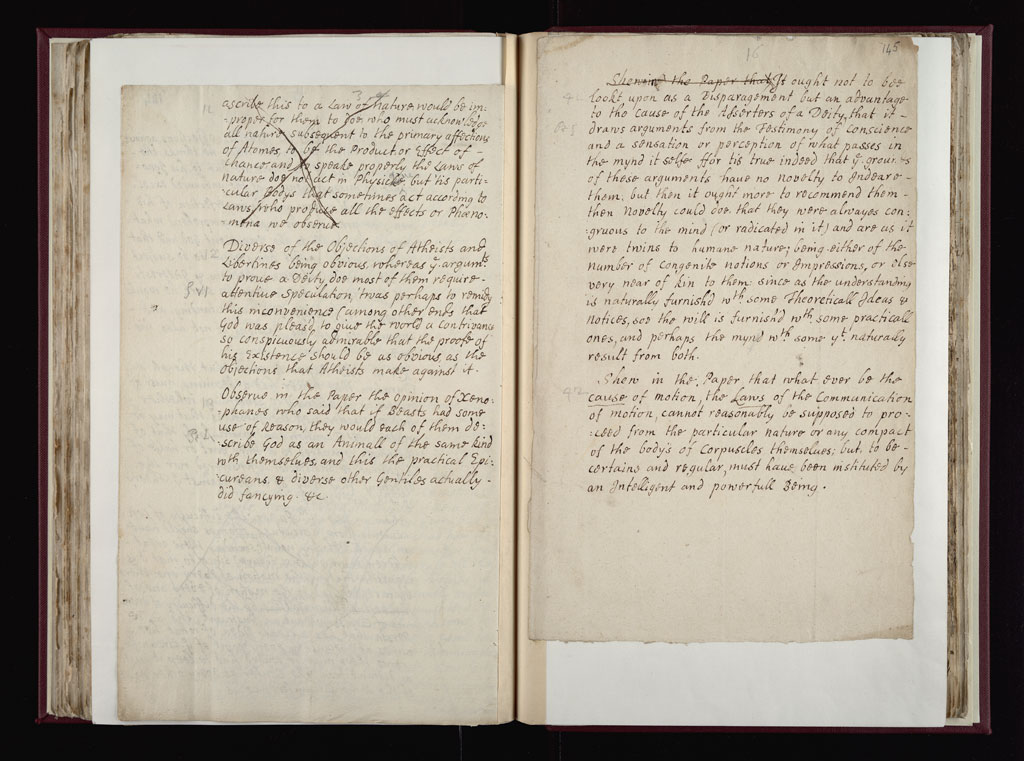 3
ascribe this to a Law of Nature would be im:
:proper for them to doe who must acknowledge
all nature subsequent to the primary affections
of Atomes to be the Product or Effect of -
chance and to speake properly the Laws of
nature doe not act in Physicks but tis parti:
:cular Bodys that sometimes act according to
Laws who produse all the effects or Phæno:
:mena we observe.
Diverse of the Objections of Atheists and
Libertines being obvious, whereas yᵉ argumᵗˢ
to prove a Deity doe most of them require -
attentive Speculation, 'twas perhaps to remidy
this inconvenience (among other ends that
God was pleasd to give the world a contrivance
so conspicuously admirable that the proofe of
his Existence should be as obvious as the
objections that Atheists make against it.
Observe in the Paper the opinion of Xeno:
:phanes who said that if Beasts had some
use of Reason, they would each of them de:
:scribe God as an Animall of the same kind
wth themselves; and this the practical Epi:
:cureans, & diverse other Gentiles actually -
did fancying. &c
16
145
Shewing the Paper that It ought not to bee
lookt upon as a Disparagement but an advantage
to the Cause of the Asserters of a Deity, that it -
draws arguments from the Testimony of Conscience
and a sensation or perception of what passes in
the mynd it selfe ffor tis true indeed that yᵉ grounds
of these arguments have no novelty to Indeare -
them, but then it ought more to recommend them -
then Novelty could doe that they were alwayes con:
:gruous to the mind (or radicated in it) and are as it
were twins to humane nature; being either of the
number of Congenite notions or Impressions, or else
very near of kin to them: since as the understanding
is naturally furnish'd wᵗʰ some Theoreticall Ideas &
Notices, soe the will is furnish'd wᵗʰ some practicall
ones, and perhaps the mynd wᵗʰ some yᵗ naturally
result from both.
Shew in the Paper, that what ever be the
cause of motion, the Laws of the Communication
of motion, cannot reasonably be supposed to pro:
:ceed from the particular nature or any compact
of the bodys of Corpuscles themselves; but, to be -
certaine and regular, must have been instituted by
an Intelligent and powerfull Being.